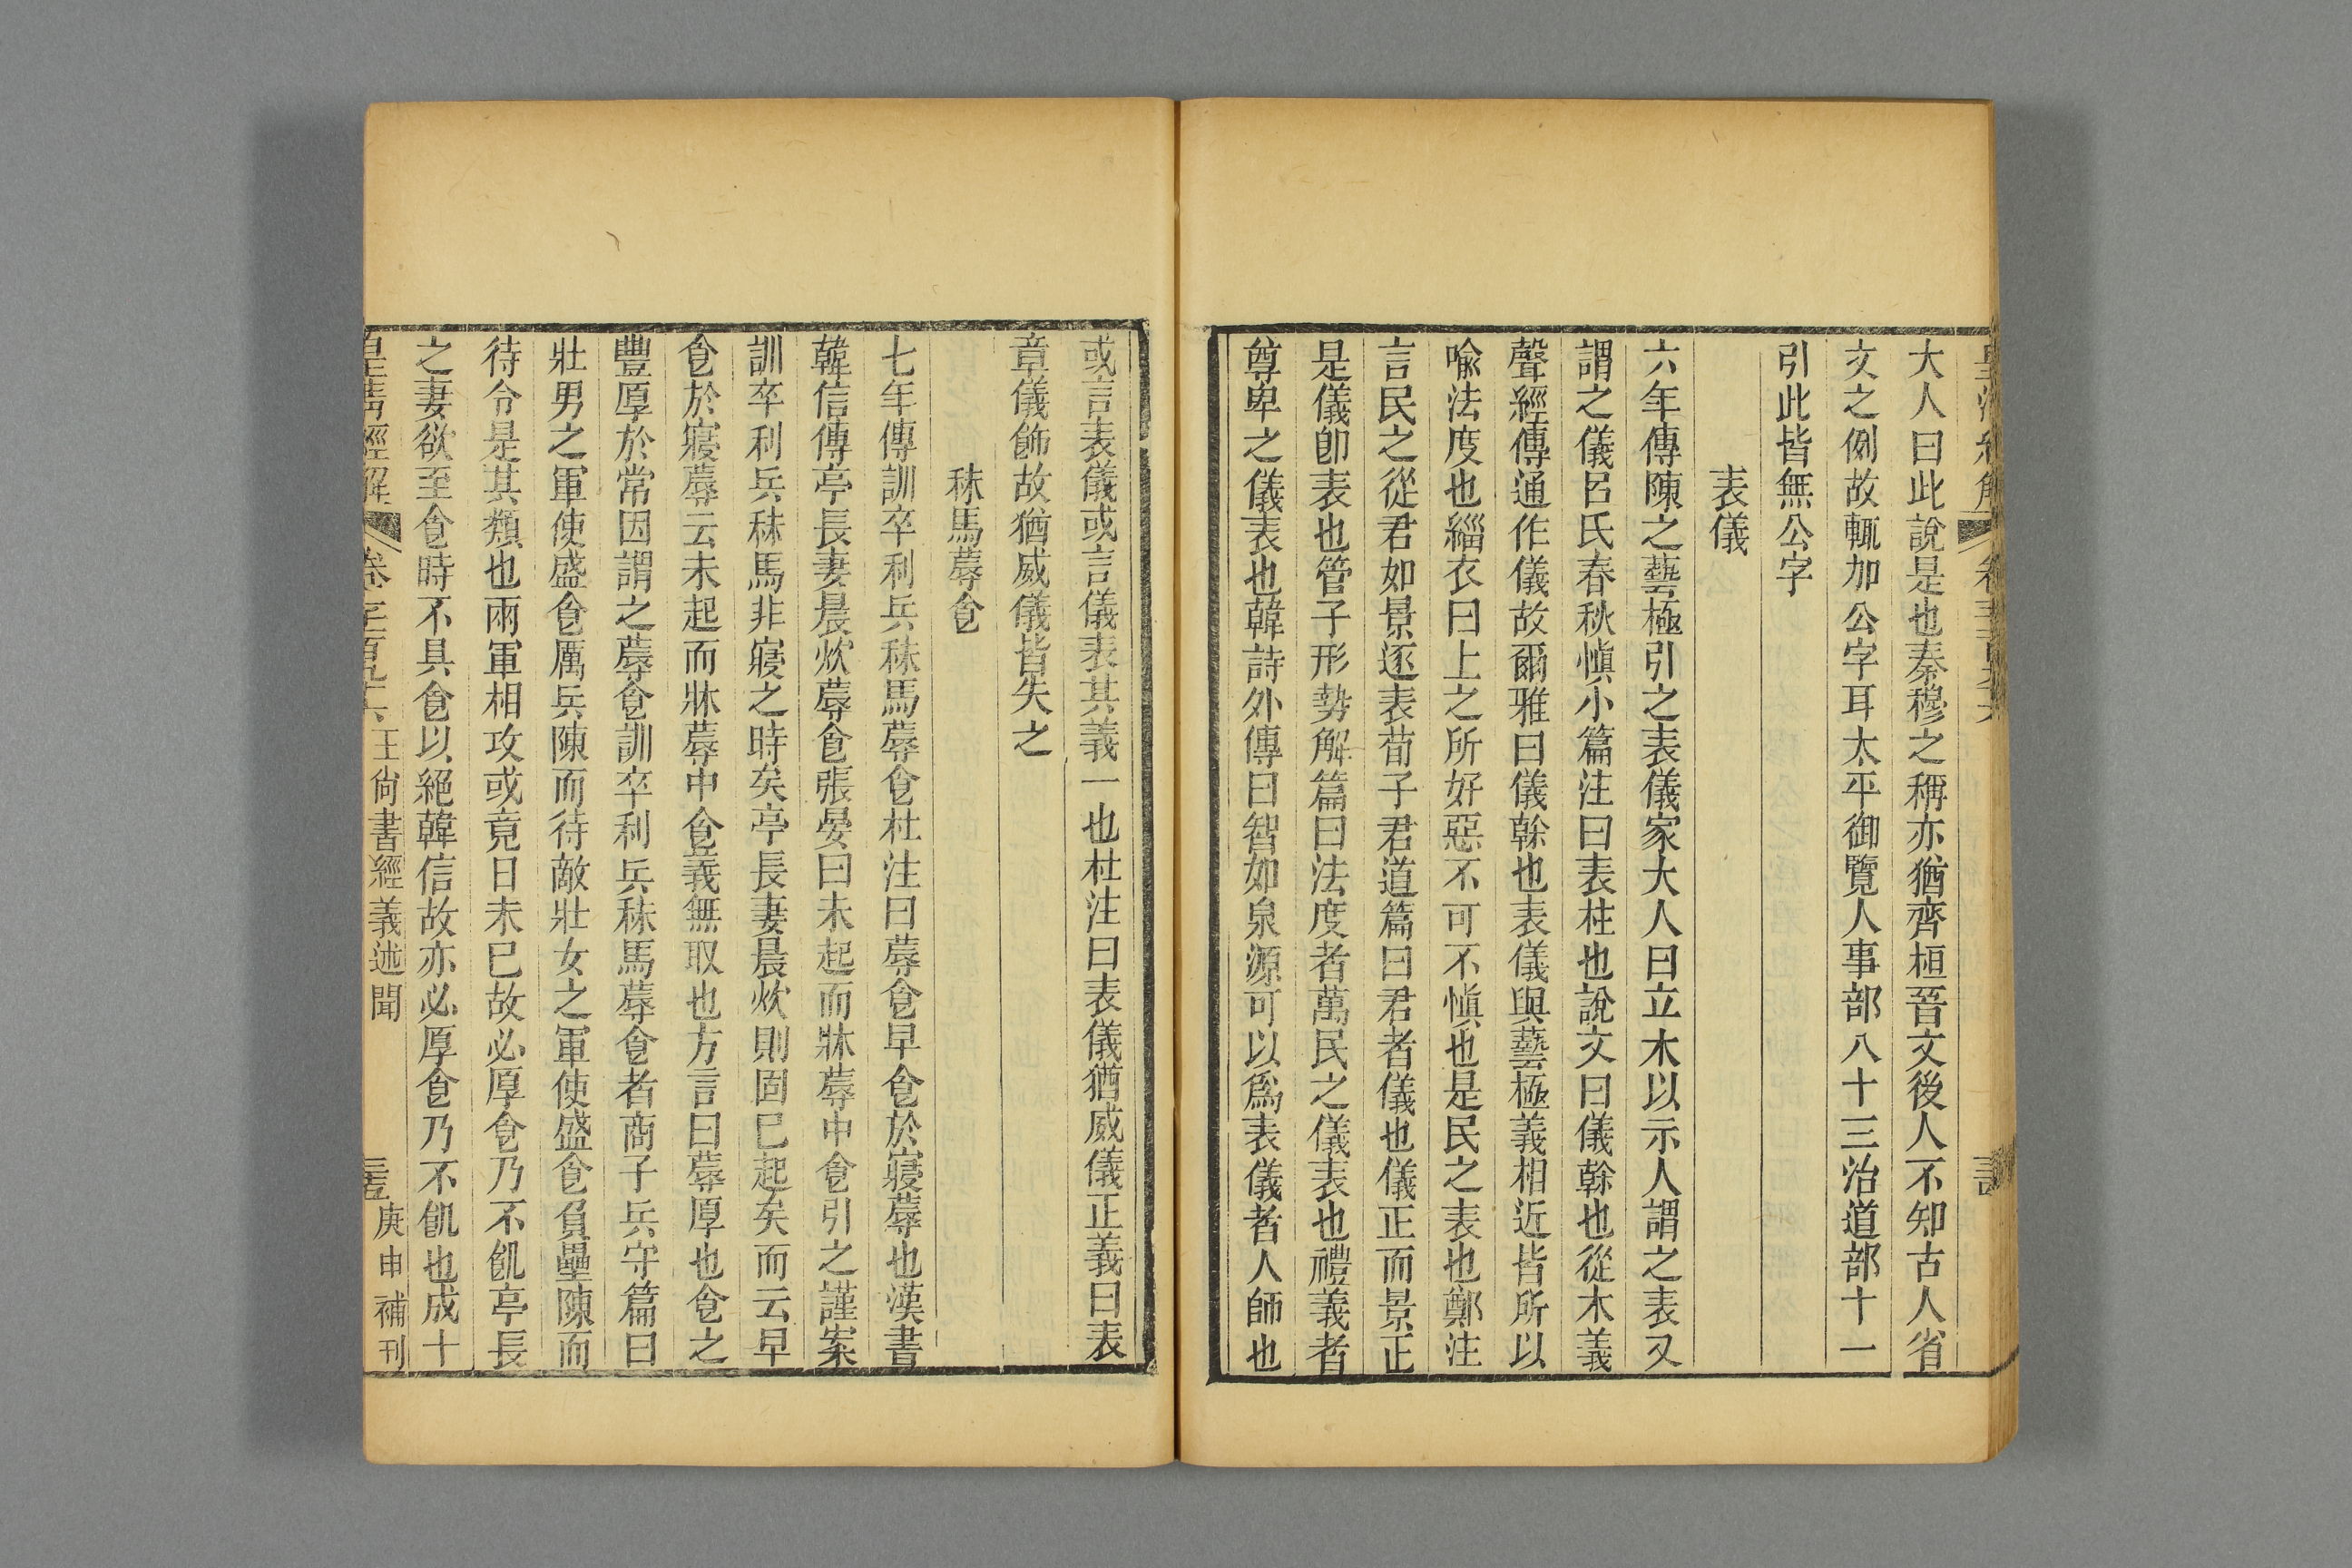 大人曰此說是也秦穆之稱亦猶齊桓晉文後人不知古人省
文之例故輒加公字耳太平御覽人事部八十三治道部十一
引此皆無公字
表儀
六年傳陳之藝極引之表儀家大人曰立木以示人謂之表又
謂之儀呂氏春秋慎小篇注曰表柱也說文曰儀榦也從木義
聲經傳通作儀故爾雅曰儀榦也表儀與藝極義相近皆所以
喻法度也緇衣曰上之所好惡不可不慎也是民之表也鄭注
言民之從君如景逐表荀子君道篇曰君者儀也儀正而景正
是儀卽表也管子形勢解篇曰法度者萬民之儀表也禮義者
尊卑之儀表也韓詩外傳曰智如泉源可以爲表儀者人師也
或言表儀或言儀表其義一也杜注曰表儀猶威儀正義曰表
章儀飾故猶威儀皆失之
秣馬蓐食
七年傳訓卒利兵秣馬蓐食杜注曰蓐食早食於寢蓐也漢書
韓信傳亭長妻晨炊蓐食張晏曰未起而牀蓐中食引之謹案
訓卒利兵秣馬非寢之時矣亭長妻晨炊則固已起矣而云早
食於寢蓐云未起而牀蓐中食義無取也方言曰蓐厚也食之
豐厚於常因謂之蓐食訓卒利兵秣馬蓐食者商子兵守篇曰
壯男之軍使盛食厲兵陳而待敵壯女之軍使盛食負壘陳而
待令是其類也兩軍相攻或竟日未已故必厚食乃不飢亭長
之妻欲至食時不具食以絕韓信故亦必厚食乃不飢也成十
皇淸經解 卷 王尙書經義述聞 庚申補刊